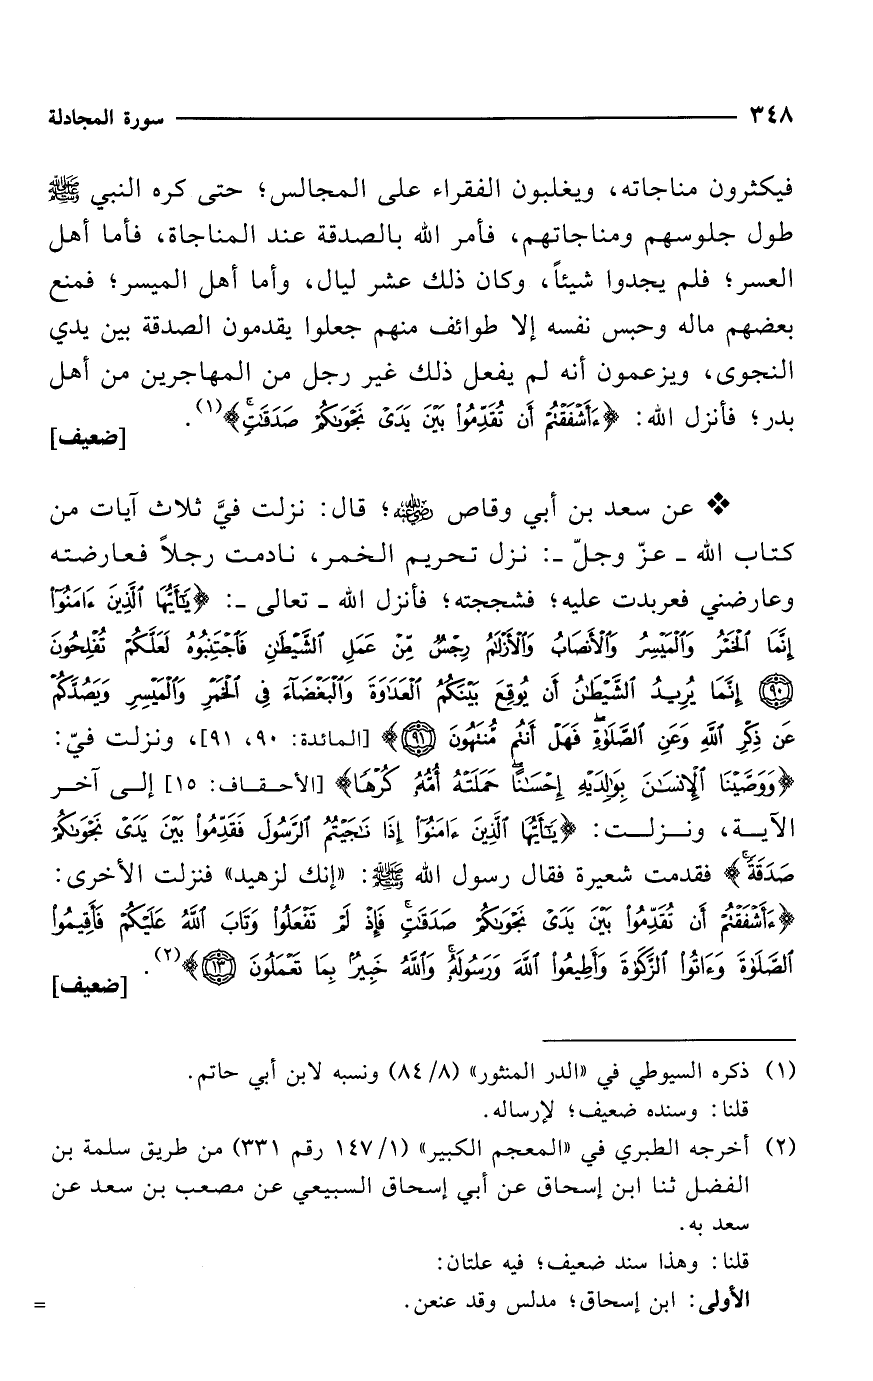 ٣٤٨ سورة المجادلة
فيكثرون مناجاته، ويغلبون الفقراء على المجالس؛ حتى كره النبي ﷺ
طول جلوسهم ومناجاتهم، فأمر الله بالصدقة عند المناجاة، فأما أهل
العسر؛ فلم يجدوا شيئاً، وكان ذلك عشر ليال، وأما أهل الميسر؛ فمنع
بعضهم ماله وحبس نفسه إلا طوائف منهم جعلوا يقدمون الصدقة بين يدي
النجوى، ويزعمون أنه لم يفعل ذلك غير رجل من المهاجرين من أهل
بدر؛ فأنزل الله: ﴿ءَأَشْفَقْتُمْ أَن تُقَدِّمُوا۟ بَيْنَ يَدَىْ نَجْوَىٰكُمْ صَدَقَـٰتٍۚ﴾(١).
[ضعيف]
❖ عن سعد بن أبي وقاص رضي الله عنه؛ قال: نزلت فيَّ ثلاث آيات من
كتاب الله ـ عزّ وجلّ ـ: نزل تحريم الخمر، نادمت رجلاً فعارضته
وعارضني فعربدت عليه؛ فشججته؛ فأنزل الله ـ تعالى ـ: ﴿يَـٰٓأَيُّهَا ٱلَّذِينَ ءَامَنُوٓا۟
إِنَّمَا ٱلْخَمْرُ وَٱلْمَيْسِرُ وَٱلْأَنصَابُ وَٱلْأَزْلَـٰمُ رِجْسٌ مِّنْ عَمَلِ ٱلشَّيْطَـٰنِ فَٱجْتَنِبُوهُ لَعَلَّكُمْ تُفْلِحُونَ
﴿٩٠﴾ إِنَّمَا يُرِيدُ ٱلشَّيْطَـٰنُ أَن يُوقِعَ بَيْنَكُمُ ٱلْعَدَٰوَةَ وَٱلْبَغْضَآءَ فِى ٱلْخَمْرِ وَٱلْمَيْسِرِ وَيَصُدَّكُمْ
عَن ذِكْرِ ٱللَّهِ وَعَنِ ٱلصَّلَوٰةِۖ فَهَلْ أَنتُم مُّنتَهُونَ ﴿٩١﴾﴾ [المائدة: ٩٠، ٩١]، ونزلت فيّ:
﴿وَوَصَّيْنَا ٱلْإِنسَـٰنَ بِوَٰلِدَيْهِ إِحْسَـٰنًاۖ حَمَلَتْهُ أُمُّهُۥ كُرْهًا﴾ [الأحقاف: ١٥] إلى آخر
الآية، ونزلت: ﴿يَـٰٓأَيُّهَا ٱلَّذِينَ ءَامَنُوٓا۟ إِذَا نَـٰجَيْتُمُ ٱلرَّسُولَ فَقَدِّمُوا۟ بَيْنَ يَدَىْ نَجْوَىٰكُمْ
صَدَقَةًۚ﴾ فقدمت شعيرة فقال رسول الله ﷺ: «إنك لزهيد» فنزلت الأخرى:
﴿ءَأَشْفَقْتُمْ أَن تُقَدِّمُوا۟ بَيْنَ يَدَىْ نَجْوَىٰكُمْ صَدَقَـٰتٍۚ فَإِذْ لَمْ تَفْعَلُوا۟ وَتَابَ ٱللَّهُ عَلَيْكُمْ فَأَقِيمُوا۟
ٱلصَّلَوٰةَ وَءَاتُوا۟ ٱلزَّكَوٰةَ وَأَطِيعُوا۟ ٱللَّهَ وَرَسُولَهُۥۚ وَٱللَّهُ خَبِيرٌۢ بِمَا تَعْمَلُونَ ﴿١٣﴾﴾(٢).
[ضعيف]
(١) ذكره السيوطي في «الدر المنثور» (٨/ ٨٤) ونسبه لابن أبي حاتم.
قلنا: وسنده ضعيف؛ لإرساله.
(٢) أخرجه الطبري في «المعجم الكبير» (١/ ١٤٧ رقم ٣٣١) من طريق سلمة بن
الفضل ثنا ابن إسحاق عن أبي إسحاق السبيعي عن مصعب بن سعد عن
سعد به.
قلنا: وهذا سند ضعيف؛ فيه علتان:
الأولى: ابن إسحاق؛ مدلس وقد عنعن.
=